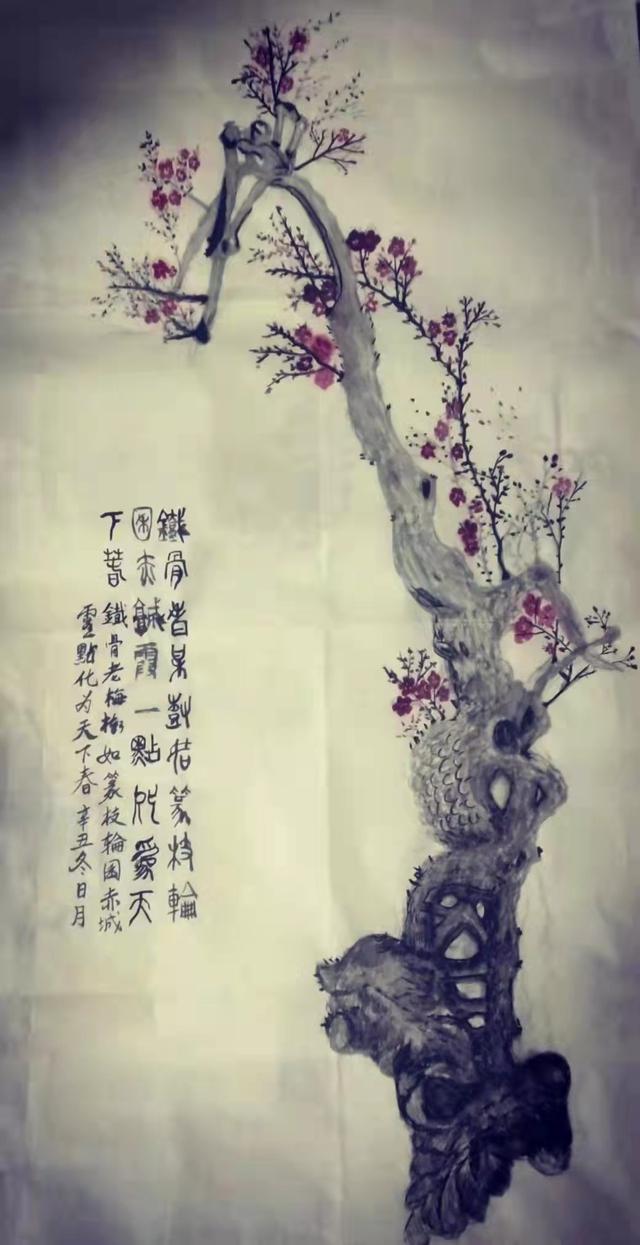 鐵骨老梅樹若篆枝輪
囷赤城霞一點化為天
下春
鐵骨老梅樹如篆枝輪囷赤城
霞一點化为天下春 辛丑冬日月